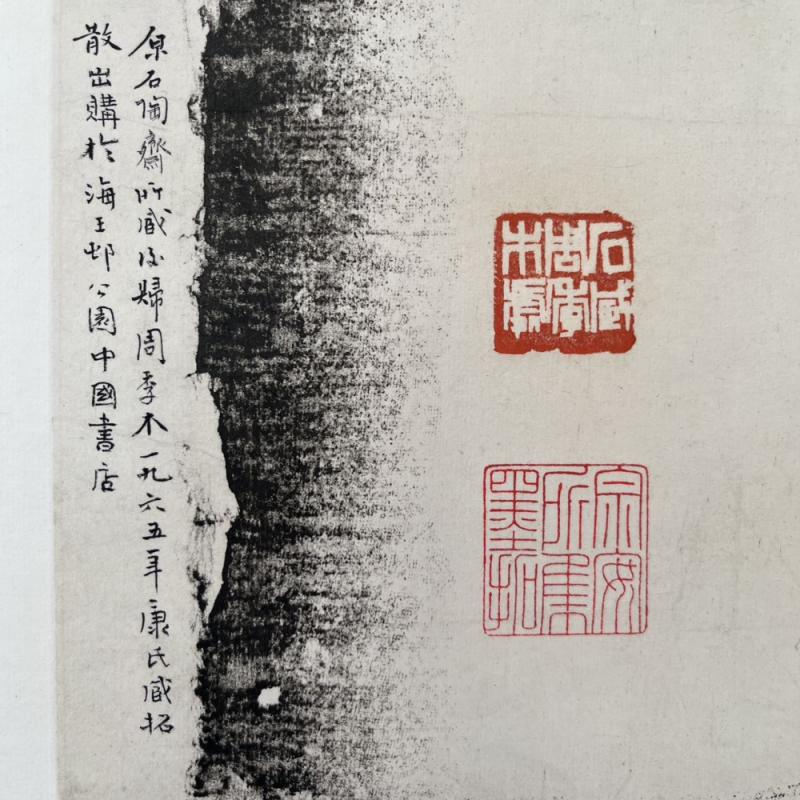 原石陶齋所藏後歸周季木一九六五年康氏藏拓
散出購於海王邨公園中國書店
石藏
周季
木處
宗安
所集
墨拓